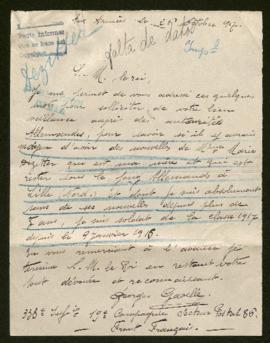 Aux Armées le 25
falta de datos
S. M. le roi,
Je me permet de vous adressé ces quelques
pour solliciter de votre bien
veillance auprès des autorités
Allemandes, pour savoir si il y aurait
moyen d'avoir des nouvelles de Marie
qui est ma mère et qui est
rester sous le joug Allemands à
Lille Nord. étant je suis absolument
sans de ses nouvelle depuis plus de
3 ans, je suis soldat de la classe 1917
depuis le 9 janvier 1916.
En vous remerciant à l'avance je
termine S. M. le Roi en restant votre
tout dévoué et reconnaissant.
Georges
338e Inf. 19e Compagnie Secteur Postal 86.
Front Français.